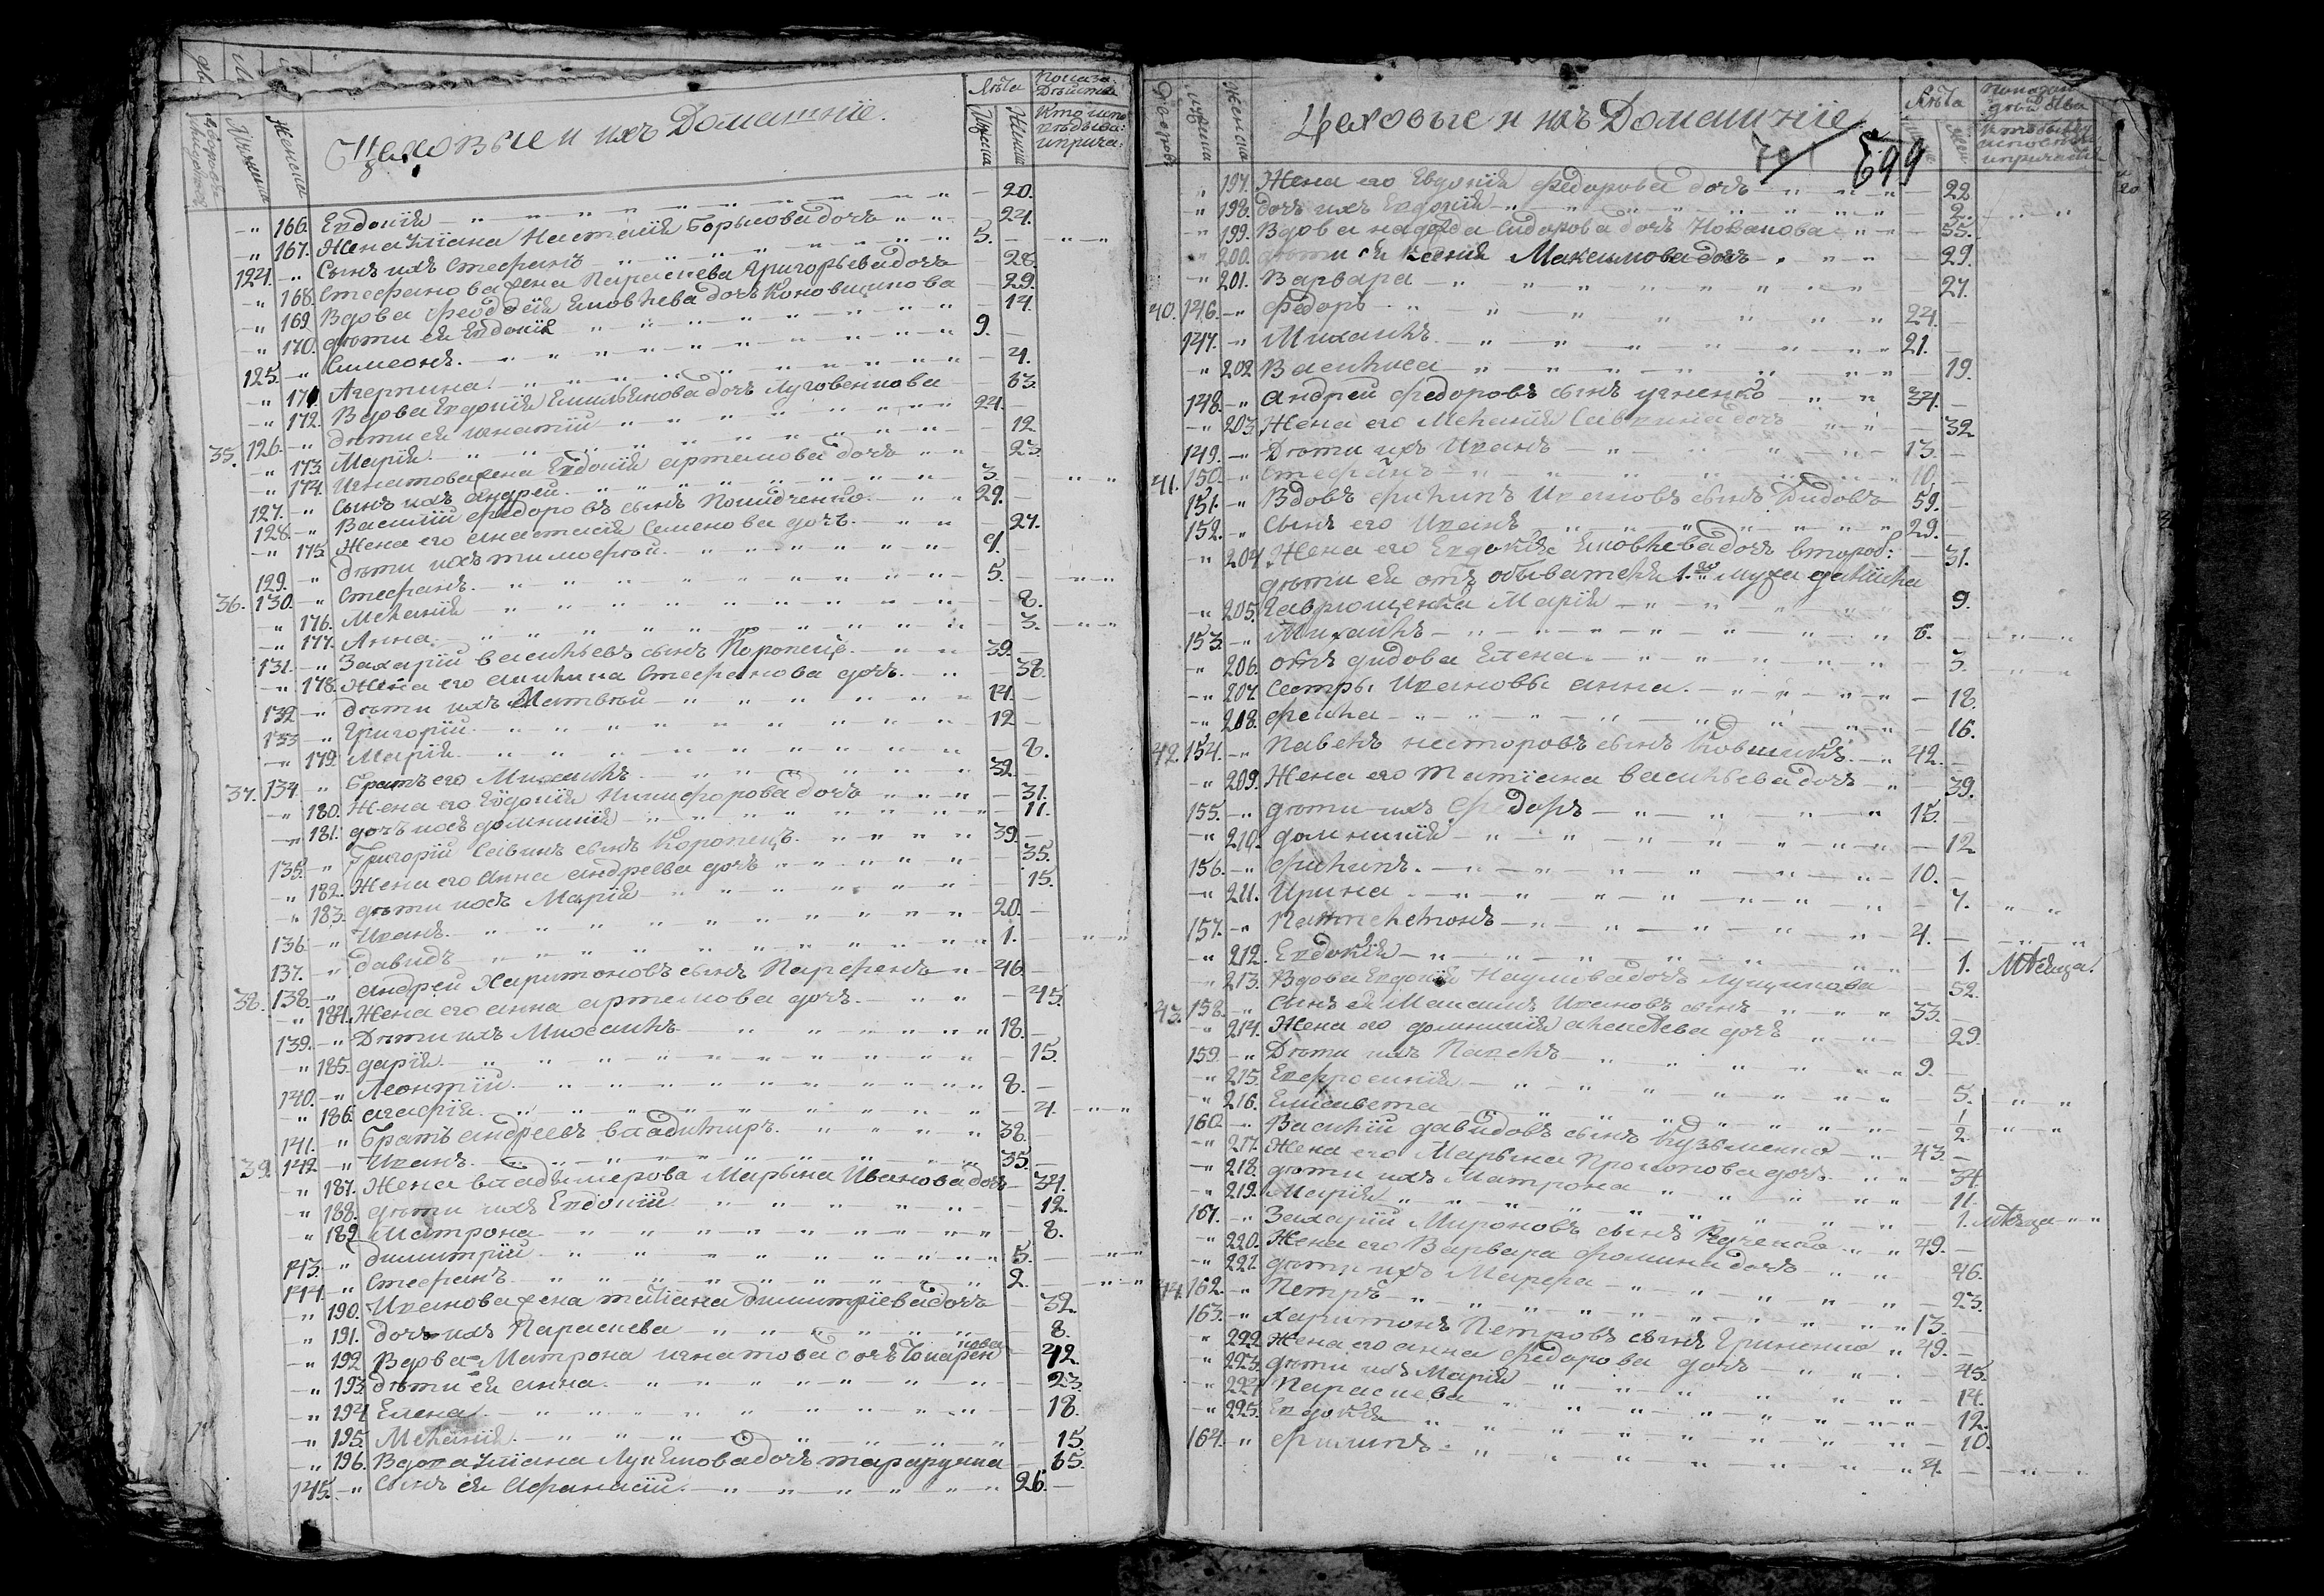 Цеховые и ихъ Домашніе.
Лѣта
Мужеска
Женска
166. Евдокія 20.
167. Жена Настасія Борисова дочь 24.
124. Сынъ ихъ Стефанъ 5.
168. Стефанова жена Параскева Григорьева дочь 28.
169. Вдова Феодосія Іаковлева дочь Коновицинова 29.
170. дѣти ея Евдокія 14.
125. Симеонъ. 9.
171. Агерпина 4.
172. Вдова Евдокія Емильянова дочь Луговенкова 63.
35. 126. дѣти ея игнатій 24.
173. Марія. 12
174. Игнатова жена Евдокія артемова дочь 23.
127. Сынъ ихъ андрей. 3.
128. Василій Федоровъ сынъ 29.
175. Жена его анастасія Семенова дочь. 27.
129. дѣти ихъ тимофѣй. 9.
36. 130. Стефанъ. 5.
176. Меланія 8.
177. Анна. 3.
131. Захарій васильевъ сынъ Коропецъ 39.
178. Жена его акилина Стефанова дочь. 38.
132 дѣти ихъ Матвѣй 14.
133 Григорій. 12
179. Марія. 8.
37. 134. Братъ его Михаилъ. 32.
180. Жена его Евдокія Никифорова дочь 31.
181. дочь ихъ домникія 11.
135. Григорій Савинъ сынъ Коропецъ. 39.
182. Жена его анна андреева дочь 35.
183. дѣти ихъ Марія 15.
136 Иванъ. 20.
137. давидъ 1.
38. 138. андрей Харитоновъ сынъ Парфенъ 46.
184. Жена его анна артемова дочь. 45.
139. Дѣти ихъ Михаилъ 18.
185. дарія. 15.
140. Леонтій. 8.
186. агафія. 4.
141. Братъ андреевъ владимиръ. 38.
39. 142. Иванъ. 35.
187. Жена владимерова Марѳина Иванова дочь 34.
188. дѣти ихъ Евдокія 12.
189. Матрона 8.
143. димитрій 5.
144. Стефанъ. 2.
190. Иванова жена татіана димитріева дочь 32.
191. дочь ихъ Параскева 8.
192 Вдова Матрона игнатова дочь 42.
193. дѣти ея анна. 23.
194. Елена. 18.
195. Меланія. 15.
196. Вдова Лукіанова дочь 65.
145. Сынъ ея Афанасій. 26.
Цеховые и ихъ Домашніе
701 699
Дворовъ
Мужеска
Женска
Лѣта
197. Жена его Евдокія федорова дочь 22
198. дочь ихъ Евдокія 2.
199. Вдова надежда Сидорова дочь 55.
200. дѣти ея Ксенія Максимова дочь 29.
201. Варвара 27.
40. 146. Федоръ 24.
147. Михаилъ. 21.
202 Василиса 19.
148. андрей федоровъ сынъ 34.
203 Жена его Меланія Саввина дочь 32
149. Дѣти ихъ Иванъ 13.
41. 150. Стефанъ 10.
151. Вдовъ филипъ Ивановъ сынъ Дидовъ 59.
152. Сынъ его Иванъ 29.
204 Жена его Евдокія Іаковлева дочь второб: 31.
дѣти ея отъ обывателя 1.го мужа даніила
205. Гаврющенка Марія 9.
153. Михаилъ 6.
206. отъ дидова Елена. 3.
207. Сестры Ивановы анна. 18.
208. фекла 16.
42. 154. Павелъ несторовъ сынъ Ковшикъ 42.
209. Жена его татіана васильева дочь 39.
155. дѣти ихъ Федоръ 15.
210. домникія 12
156. филипъ. 10.
211. Ирина 7.
157. Пантелемонъ 4.
212. Евдокія 1. Мѣсяца.
213. Вдова Евдокія Наумова дочь 52.
43. 158. Сынъ ея Максимъ Ивановъ сынъ 33.
214. Жена его домникія алексѣева дочь 29.
159. Дѣти ихъ Павелъ 9.
215. Евфросинія 5.
216. Елисавета 2.
160. Василій давидовъ сынъ Кузьменко 43.
217. Жена его Марѳина Прокопова дочь. 34.
218. дѣти ихъ Матрона 11.
219. Марія 1. мѣсяца
161. Захарій Мироновъ сынъ 49.
220. Жена его Варвара Фомина дочь 46.
221. дѣти ихъ Марфа 23.
44. 162. Петръ 13.
163. Харитонъ Петровъ сынъ Гриненко 49.
222. Жена его анна федорова дочь 45.
223. дѣти ихъ Марія 14.
224. Параскева 12.
225. Евдокія 10.
164. филипъ. 4.